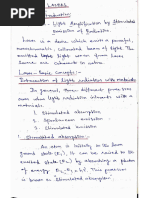 LASERS
Introduction:-
LASER :- Light Amplification by Stimulated
Emission of Radiation.
Laser is a device which emits a powerful,
monochromatic collimated beam of light. The
emitted light waves from
laser are coherent in nature.
Laser - Basic Concepts:-
Interaction of Light radiation with materials
In general, three different processes
occur when light radiation interacts with a
material.
1. Stimulated absorption
2. Spontaneous emission
3. Stimulated emission
1. Stimulated absorption:-
An atom is initially in the lower
ground state (E1), it can be raised to the
excited state (E2) by absorbing a photon
of energy. This process
is known as Stimulated absorption.